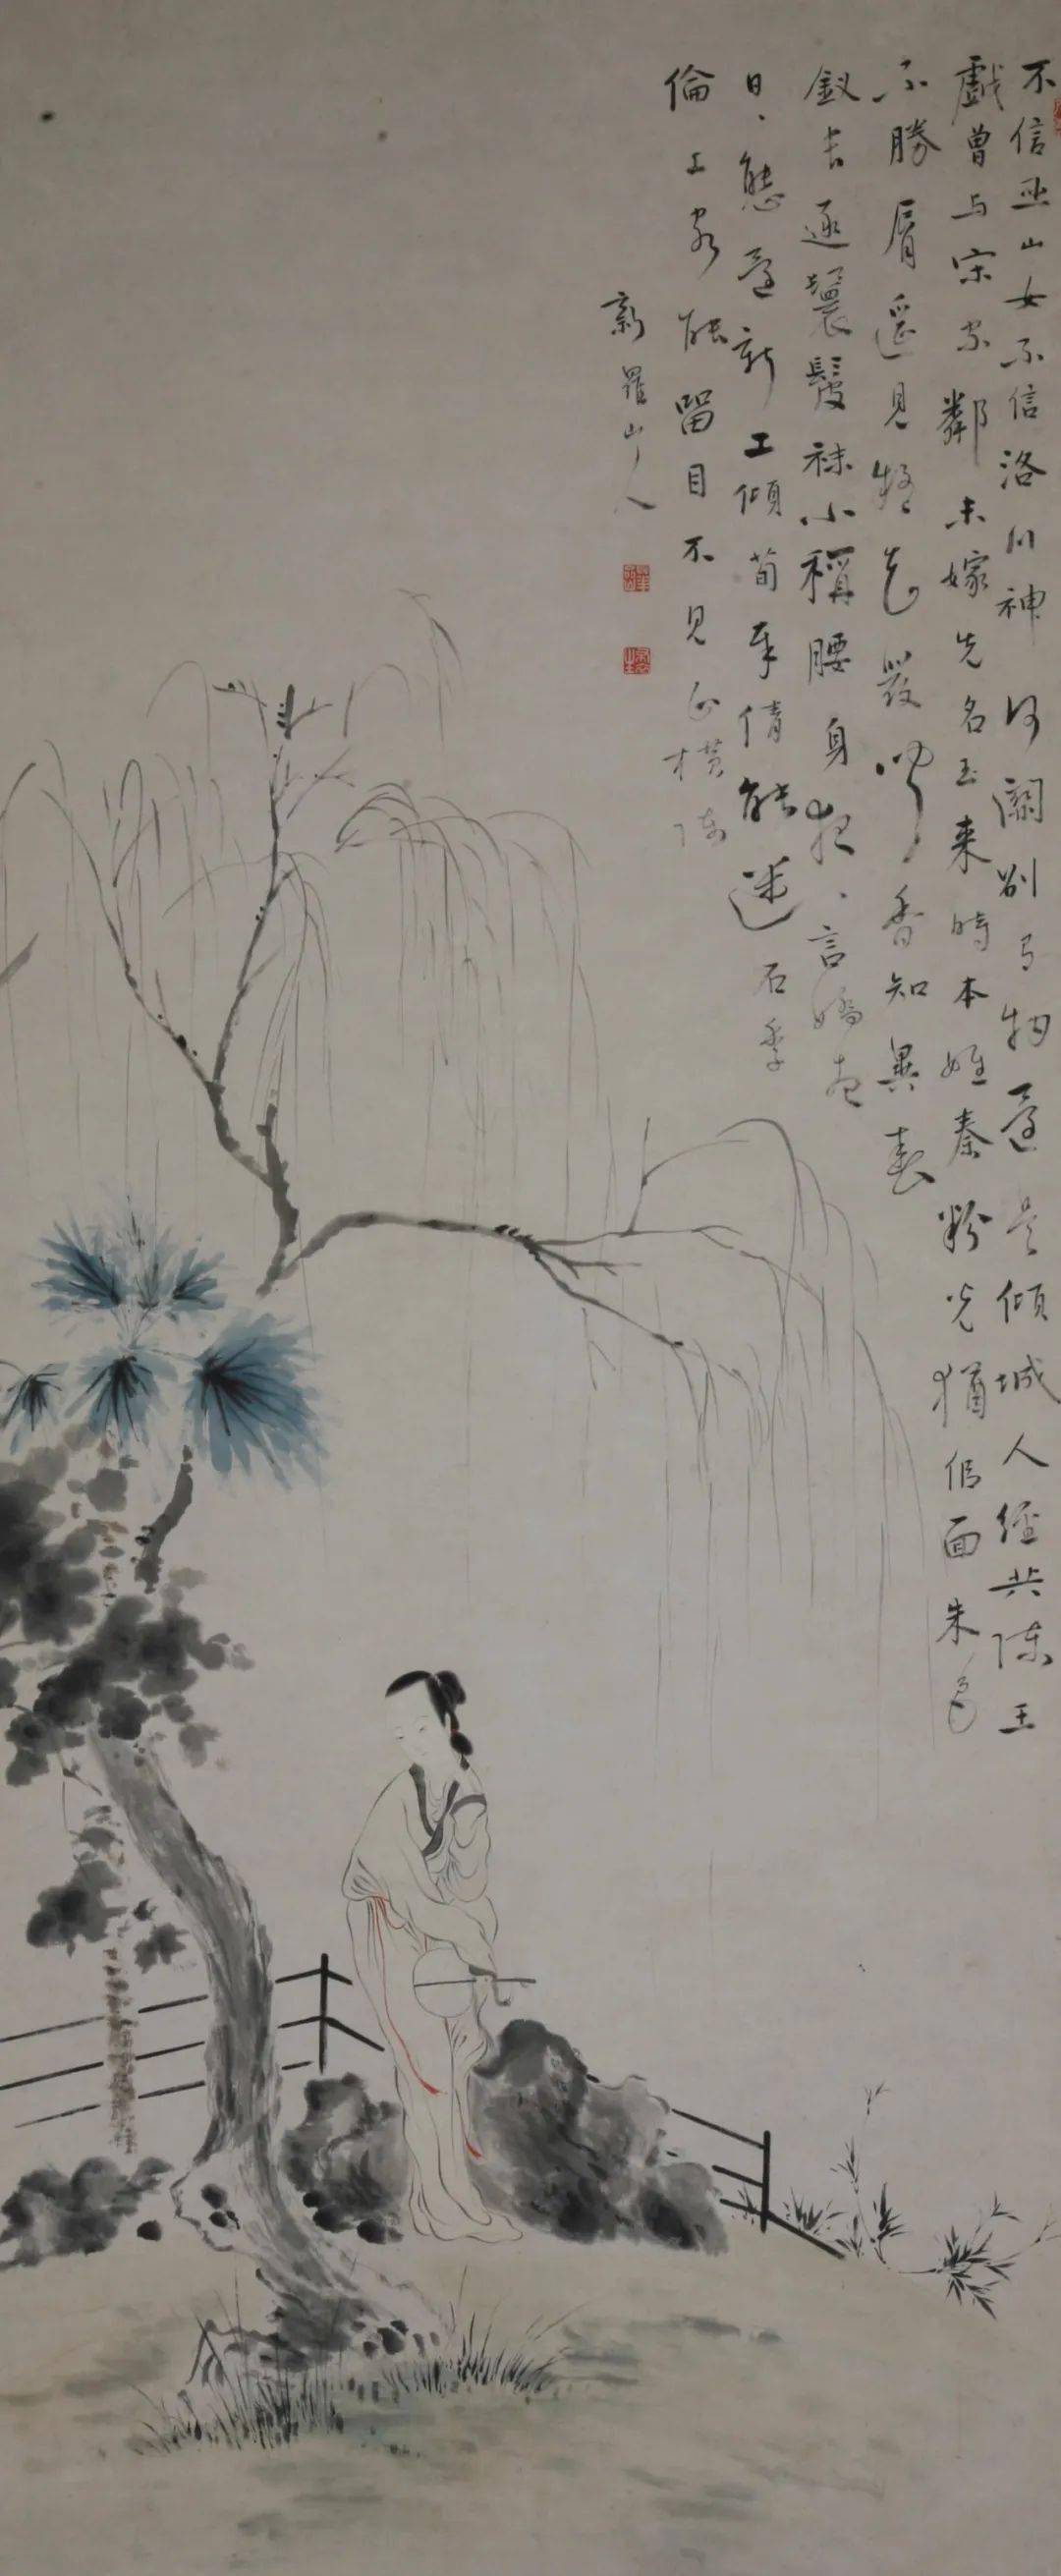 不信巫山女不信洛川神何關別有物還是傾城人經共陳王
戲曾与宋家鄰未嫁先名玉来時本姓秦粉光猶似面朱色
不勝脣遥見疑花發聞香知異春
釵長逐鬟髲袜小稱腰身夜、言嬌尽
日、態還新工傾荀奉倩能迷石季
倫上客能留目不見正横陳
新羅山人